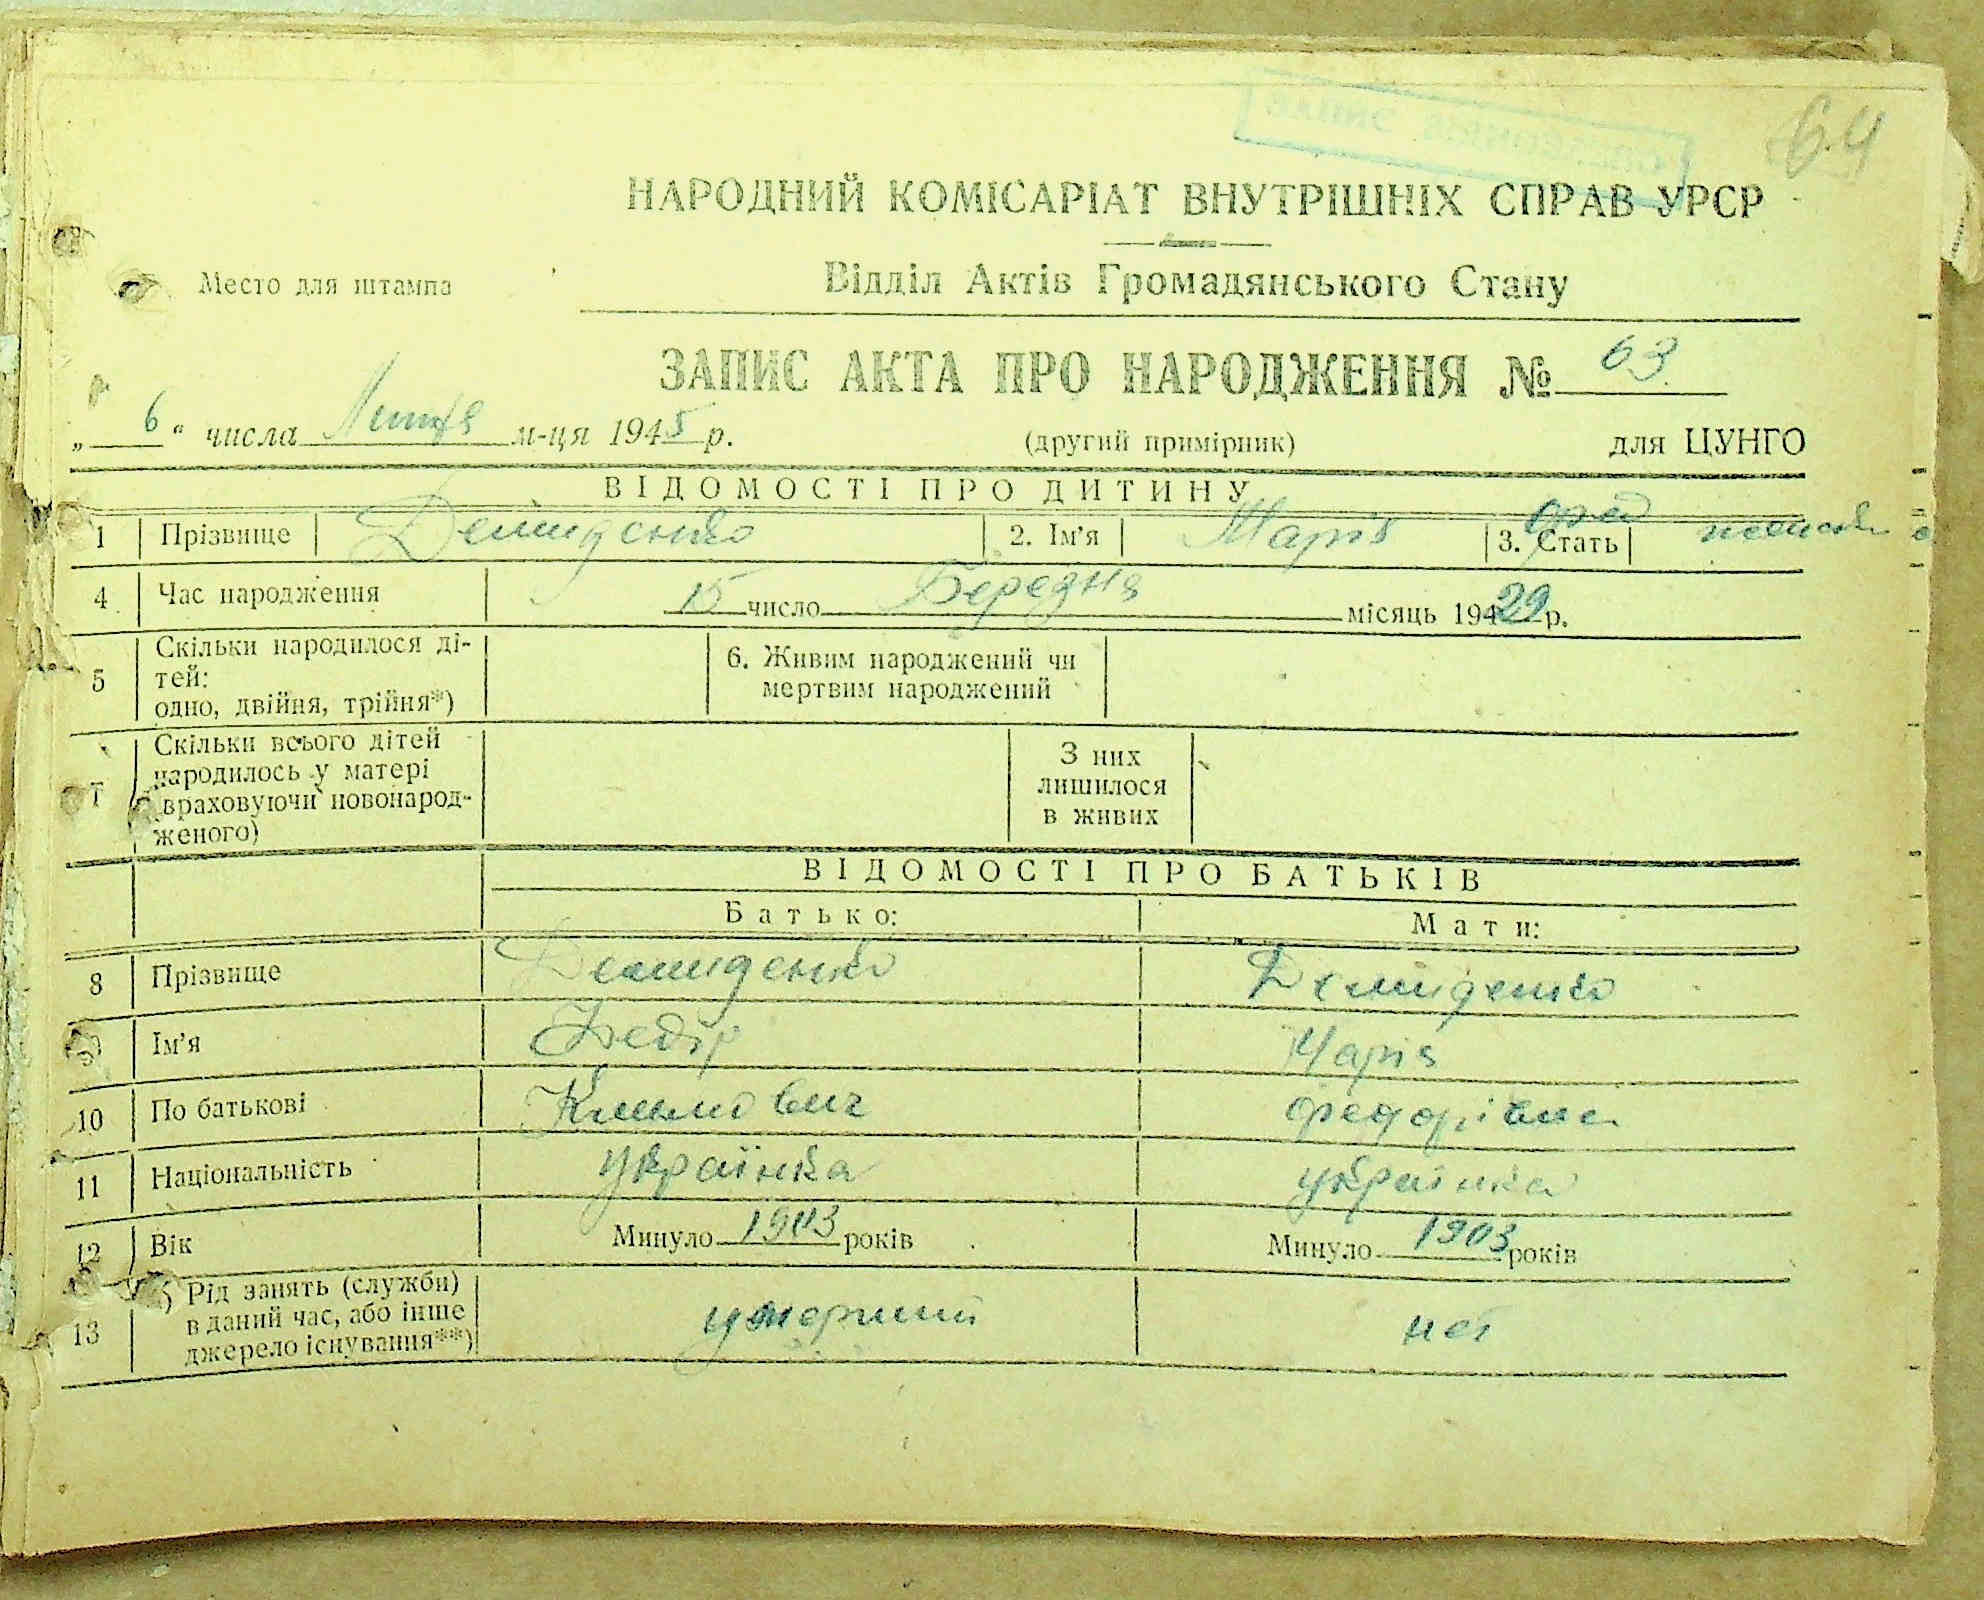 64
НАРОДНИЙ КОМІСАРІАТ ВНУТРІШНІХ СПРАВ УРСР
Место для штампа
Відділ Актів Громадянського Стану
ЗАПИС АКТА ПРО НАРОДЖЕННЯ № 63
„ 6 “ числа Липня м-ця 1945 р. (другий примірник) для ЦУНГО
ВІДОМОСТІ ПРО ДИТИНУ
1 Прізвище Демиденко 2. Ім'я Марія 3. Стать
4 Час народження 15 число Березня місяць 194 29 р.
5 Скільки народилося ді-
тей:
одно, двійня, трійня*)
6. Живим народжений чи
мертвим народжений
7 Скільки всього дітей
народилось у матері
(враховуючи новонарод-
женого)
З них
лишилося
в живих
ВІДОМОСТІ ПРО БАТЬКІВ
Батько: Мати:
8 Прізвище Демиденко Демиденко
9 Ім'я Федір Марія
10 По батькові Федорівна
11 Національність українка українка
12 Вік Минуло 1903 років Минуло 1903 років
13 Рід занять (служби)
в даний час, або інше
джерело існування**)